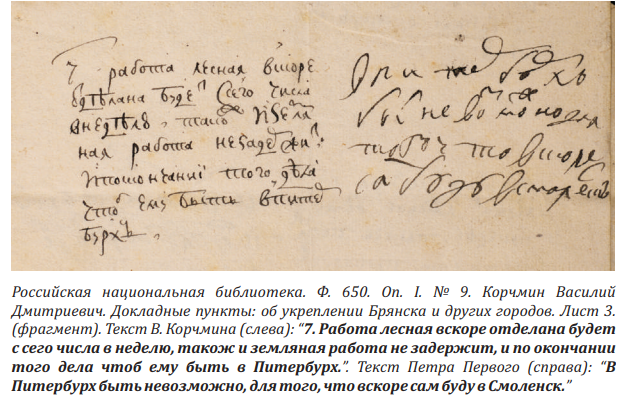 7 работа лесная вскоре
буде сего числа
внедѣлѣ, також иземля
ная работа незадержи
того дѣла
что ему быть впитер
бурхъ
невозможно для
того что вскоре
Российская национальная библиотека. Ф. 650. Оп. I. № 9. Корчмин Василий
Дмитриевич. Докладные пункты: об укреплении Брянска и других городов. Лист 3.
(фрагмент). Текст В. Корчмина (слева): “7. Работа лесная вскоре отделана будет
с сего числа в неделю, також и земляная работа не задержит, и по окончании
того дела чтоб ему быть в Питербурх.”. Текст Петра Первого (справа): “В
Питербурх быть невозможно, для того, что вскоре сам буду в Смоленск.”